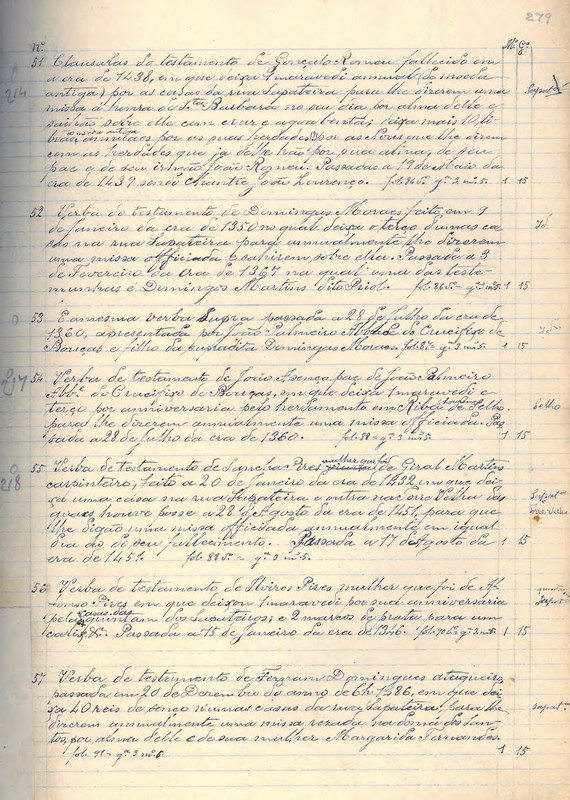 279
nº M. G.
51 Clausulas do testamento de Gonçalo Romeu fallecido em
a era de 1438, em que deixa 1 maravedi annual (de moeda
214 antiga) por as casas da rua Sapateira para lhe dizerem uma Sapatª
missa á honra de Stª Barbara no seu dia por alma delle e
sahirem sobre elle com cruz e agua benta; deixa mais 10 li-
moeda antiga
bras por as suas herdades por as que lhe dizem
com as herdades que ja delle hão por sua alma, de seu
pae e de seu irmão João Romeu. Passadas a 19 de Maio da
era de 1439 sendo Chantre João Lourenço. fol. 86vº gª 3 mº5. 1 15
52 Verba do testamento de Domingas Moraes feito em 9
de Janeiro da era de 1350 no qual deixa o terço d'umas ca- Id.
sas na rua Sapateira para annualmente lhe dizerem
uma missa officiada e sahirem sobre ella. Passada a 3
de Fevereiro da era de 1367 na qual uma das teste-
munhas é Domingos Martins dito Priol. fol. 86vº gª 3 mº5 1 15
53 E a mesma verba supra passada a 28 de Julho da era de
1360, apresentada por João Palmeiro Abbade do Crucifixo de Id.
Bouças e filho da susadita Domingas Moraes. fol. 8 gª 3 mº5. 1 15
217 54 Verba de testamento de João pae de João Palmeiro
Abbe. do Crucifixo de Bouças, em que deixa 1 maravedi e
terço por anniversaria pelo herdamento em Riba de Selho Selho
para lhe dizerem annualmente uma missa officiada. Pas-
sada a 28 de Julho da era de 1360. fol. 88 = gª 3 mº5. 1 15
mulher que foi
218 55 Verba de testamento de Sancha Pires de Giral Martins
carpinteiro, feito a 20 de Janeiro da era de 1432, em que dei-
xa uma casa na rua Sapateira e outra na Torre Velha das Sapatª
quaes houve posse a 28 de Agosto da era de 1451, para que torre velha
lhe digão uma missa officiada annualmente em igual
dia ao do seu fallecimento. Passada a 17 de Agosto da 1 15
era de 1451. fol. 88vº = gª 3 mº5.
56 Verba de testamento de Pires mulher que foi de Af-
fonso Pires em que deixou 1 maravedi por sua anniversaria
casas das
pelas quintam dos Sapateiros; e 2 marcos de prata para um
calix, &ª. Passada a 15 de Janeiro da era de 1346. fol. 90vº gª 2 mº5. 1 15
57 Verba de testamento de Fernam Domingues
passada em 20 de Dezembro do anno de Ch. 1486, em que dei-
xa 40 reis de censo n'umas casas da rua Sapateira para lhe sapatª
dizerem annualmente uma missa rezada na dom.ª dos San-
tos, por alma d'elle e de sua mulher Margarida Fernandes.
fol. 91 = gª 3 mº5 1 15